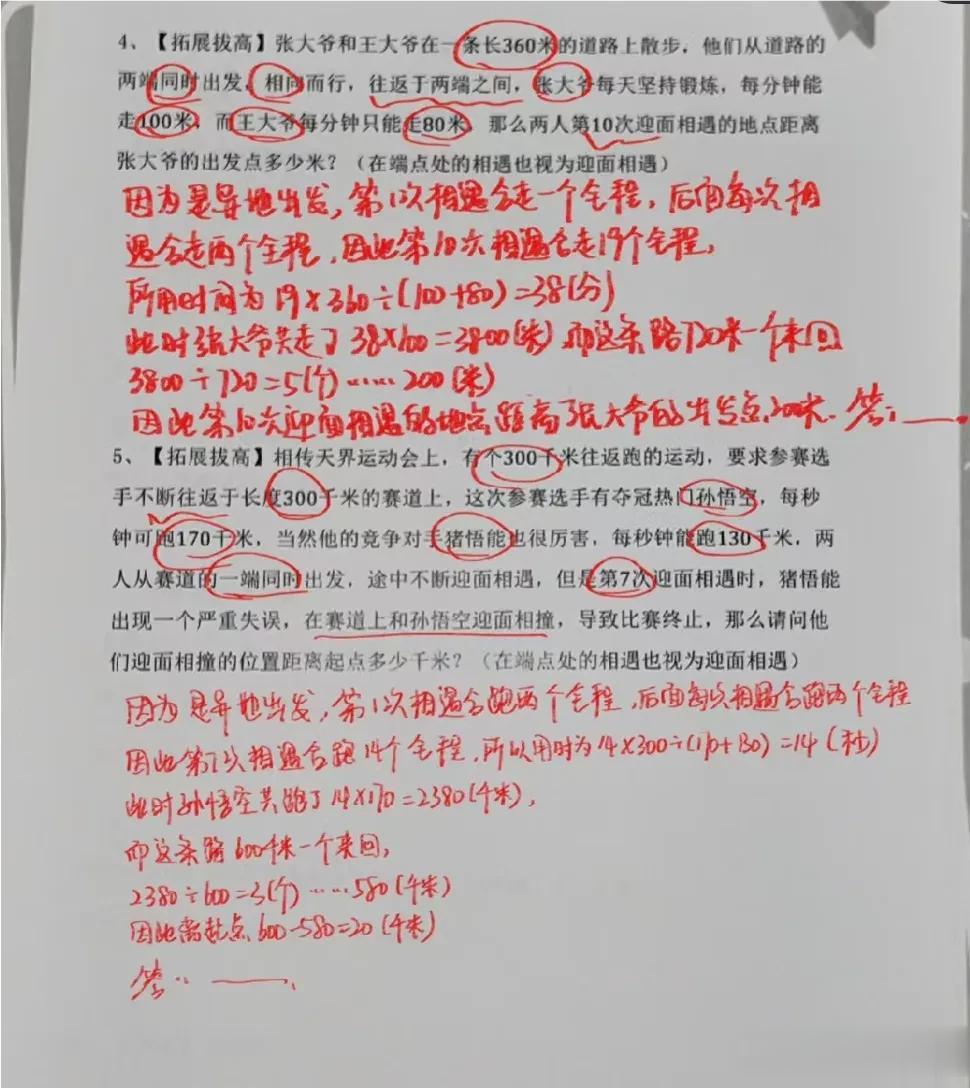 4、【拓展拔高】张大爷和王大爷在一条长360米的道路上散步，他们从道路的
两端同时出发，相向而行，往返于两端之间，张大爷每天坚持锻炼，每分钟能
走100米，而王大爷每分钟只能走80米，那么两人第10次迎面相遇的地点距离
张大爷的出发点多少米？（在端点处的相遇也视为迎面相遇）
因为是异地出发，第1次相遇合走一个全程，后面每次相
遇合走两个全程，因此第10次相遇合走19个全程，
所用时间为19×360÷(100+80)=38(分)
此时张大爷共走了38×100=3800(米)，而这条路720米一个来回
3800÷720=5(个)……200(米)
因此第10次迎面相遇的地点距离张大爷的出发点200米. 答：——.
5、【拓展拔高】相传天界运动会上，有个300千米往返跑的运动，要求参赛选
手不断往返于长度300千米的赛道上，这次参赛选手有夺冠热门孙悟空，每秒
钟可跑170千米，当然他的竞争对手猪悟能也很厉害，每秒钟能跑130千米，两
人从赛道的一端同时出发，途中不断迎面相遇，但是第7次迎面相遇时，猪悟能
出现一个严重失误，在赛道上和孙悟空迎面相撞，导致比赛终止，那么请问他
们迎面相撞的位置距离起点多少千米？（在端点处的相遇也视为迎面相遇）
因为是异地出发，第1次相遇合跑两个全程，后面每次相遇合跑两个全程
因此第7次相遇合跑14个全程，所以用时为14×300÷(170+130)=14(秒)
此时孙悟空共跑了14×170=2380(千米)，
而这条路600千米一个来回，
2380÷600=3(个)……580(千米)
因此离起点600-580=20(千米)
答：——.